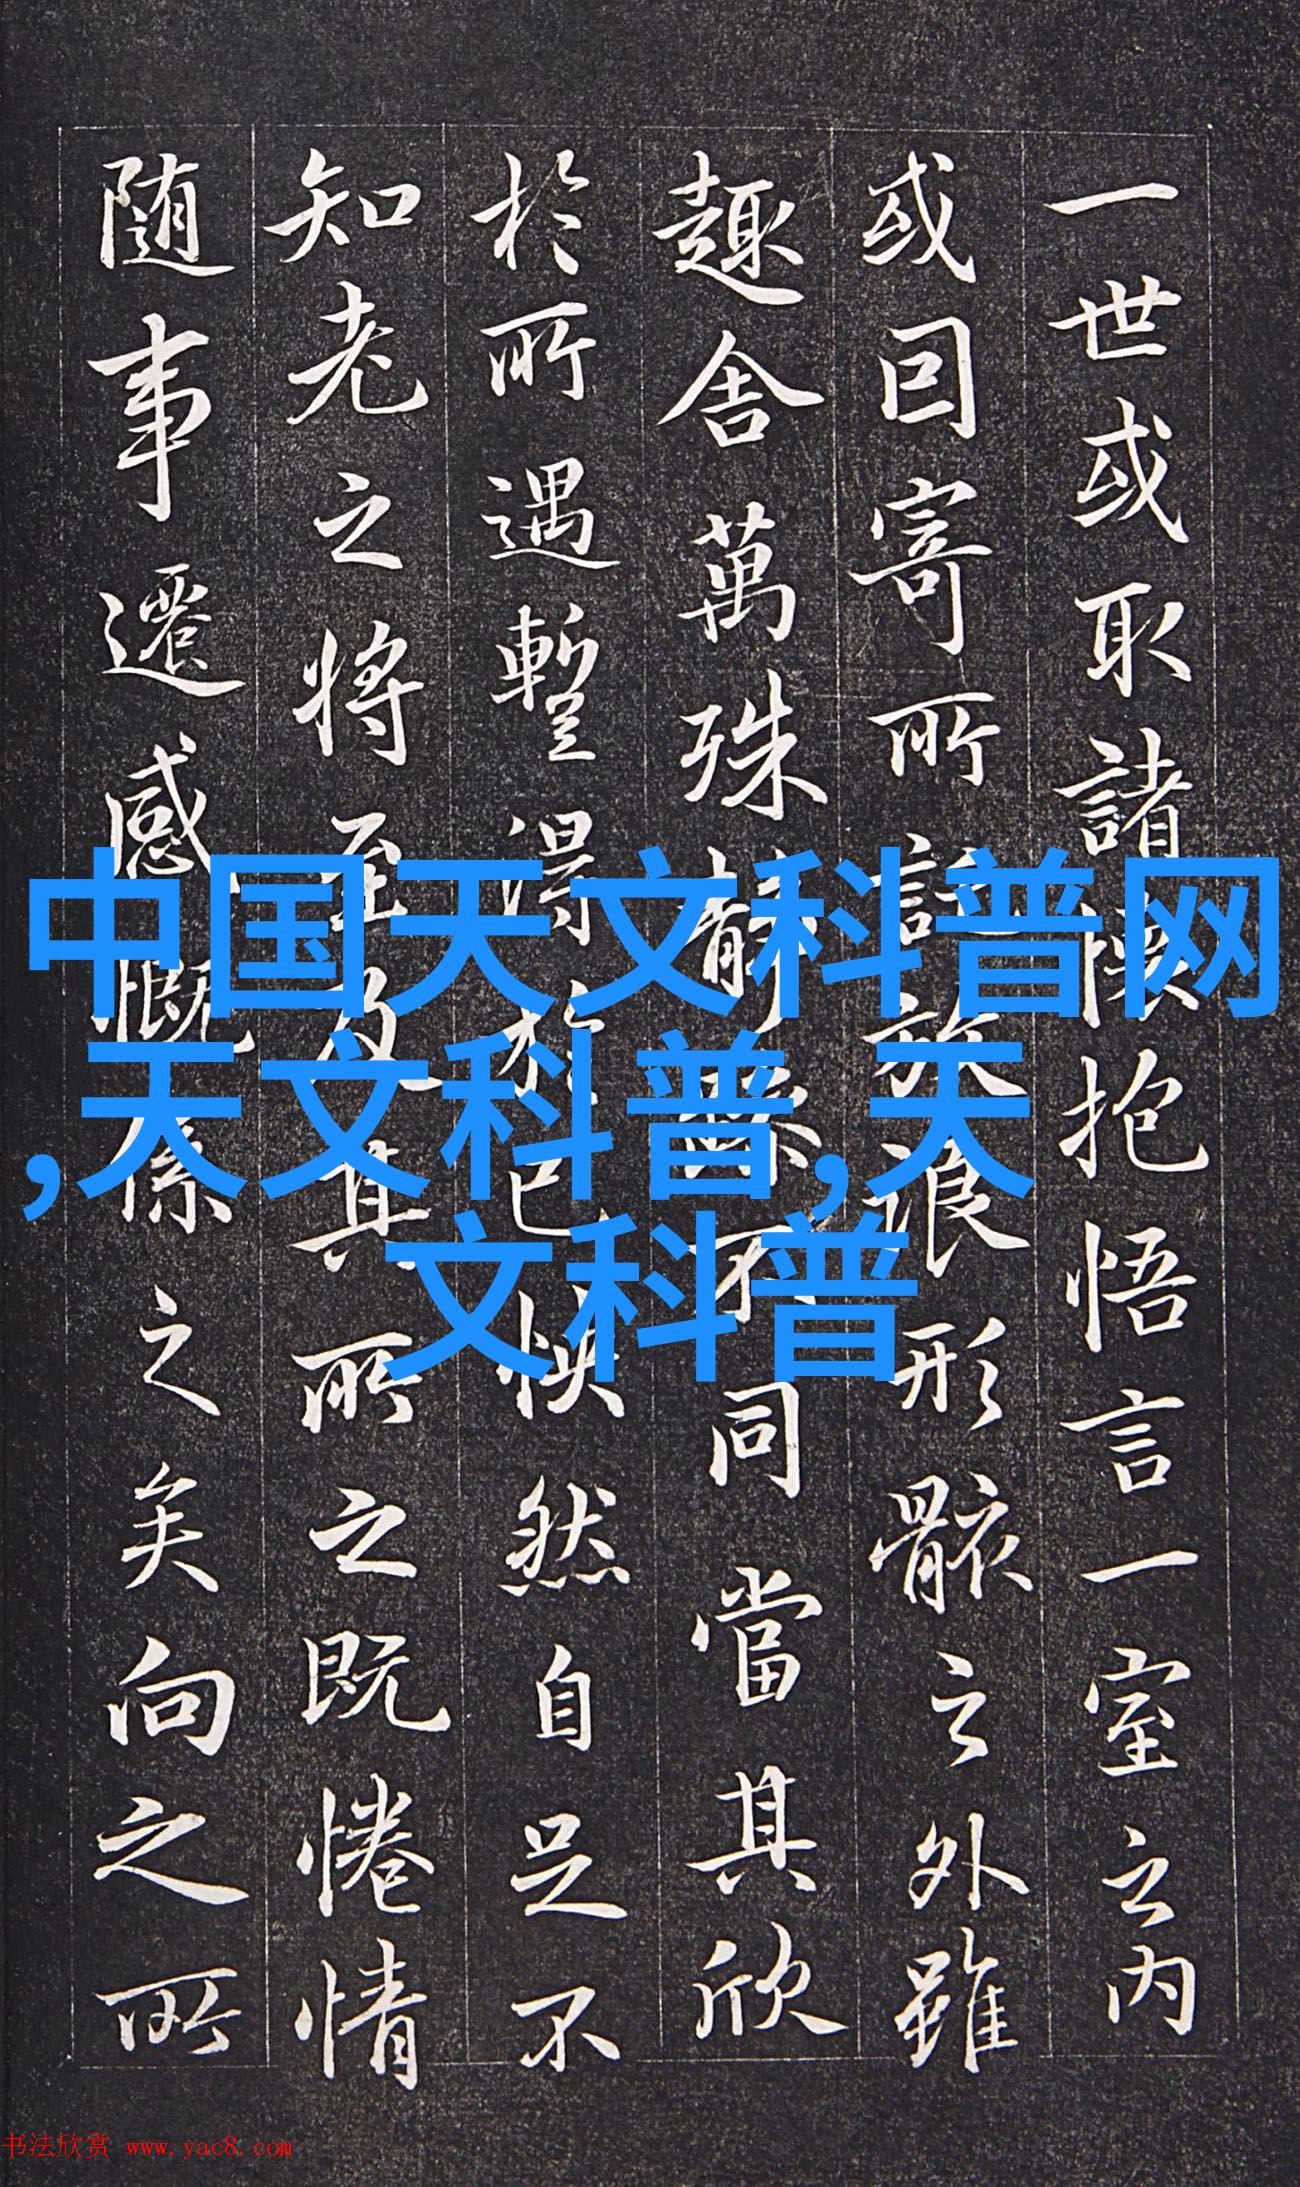 一世或取諸懷抱悟言一室之内
或因寄所託放浪形骸之外雖
趣舍萬殊静躁不同當其欣
於所遇暫得於己怏然自足不
知老之将至及其所之既惓情
随事遷感慨係之矣向之所
中国天文科普网
,天文科普,天
文科普
书法欣赏 www.yac8.com